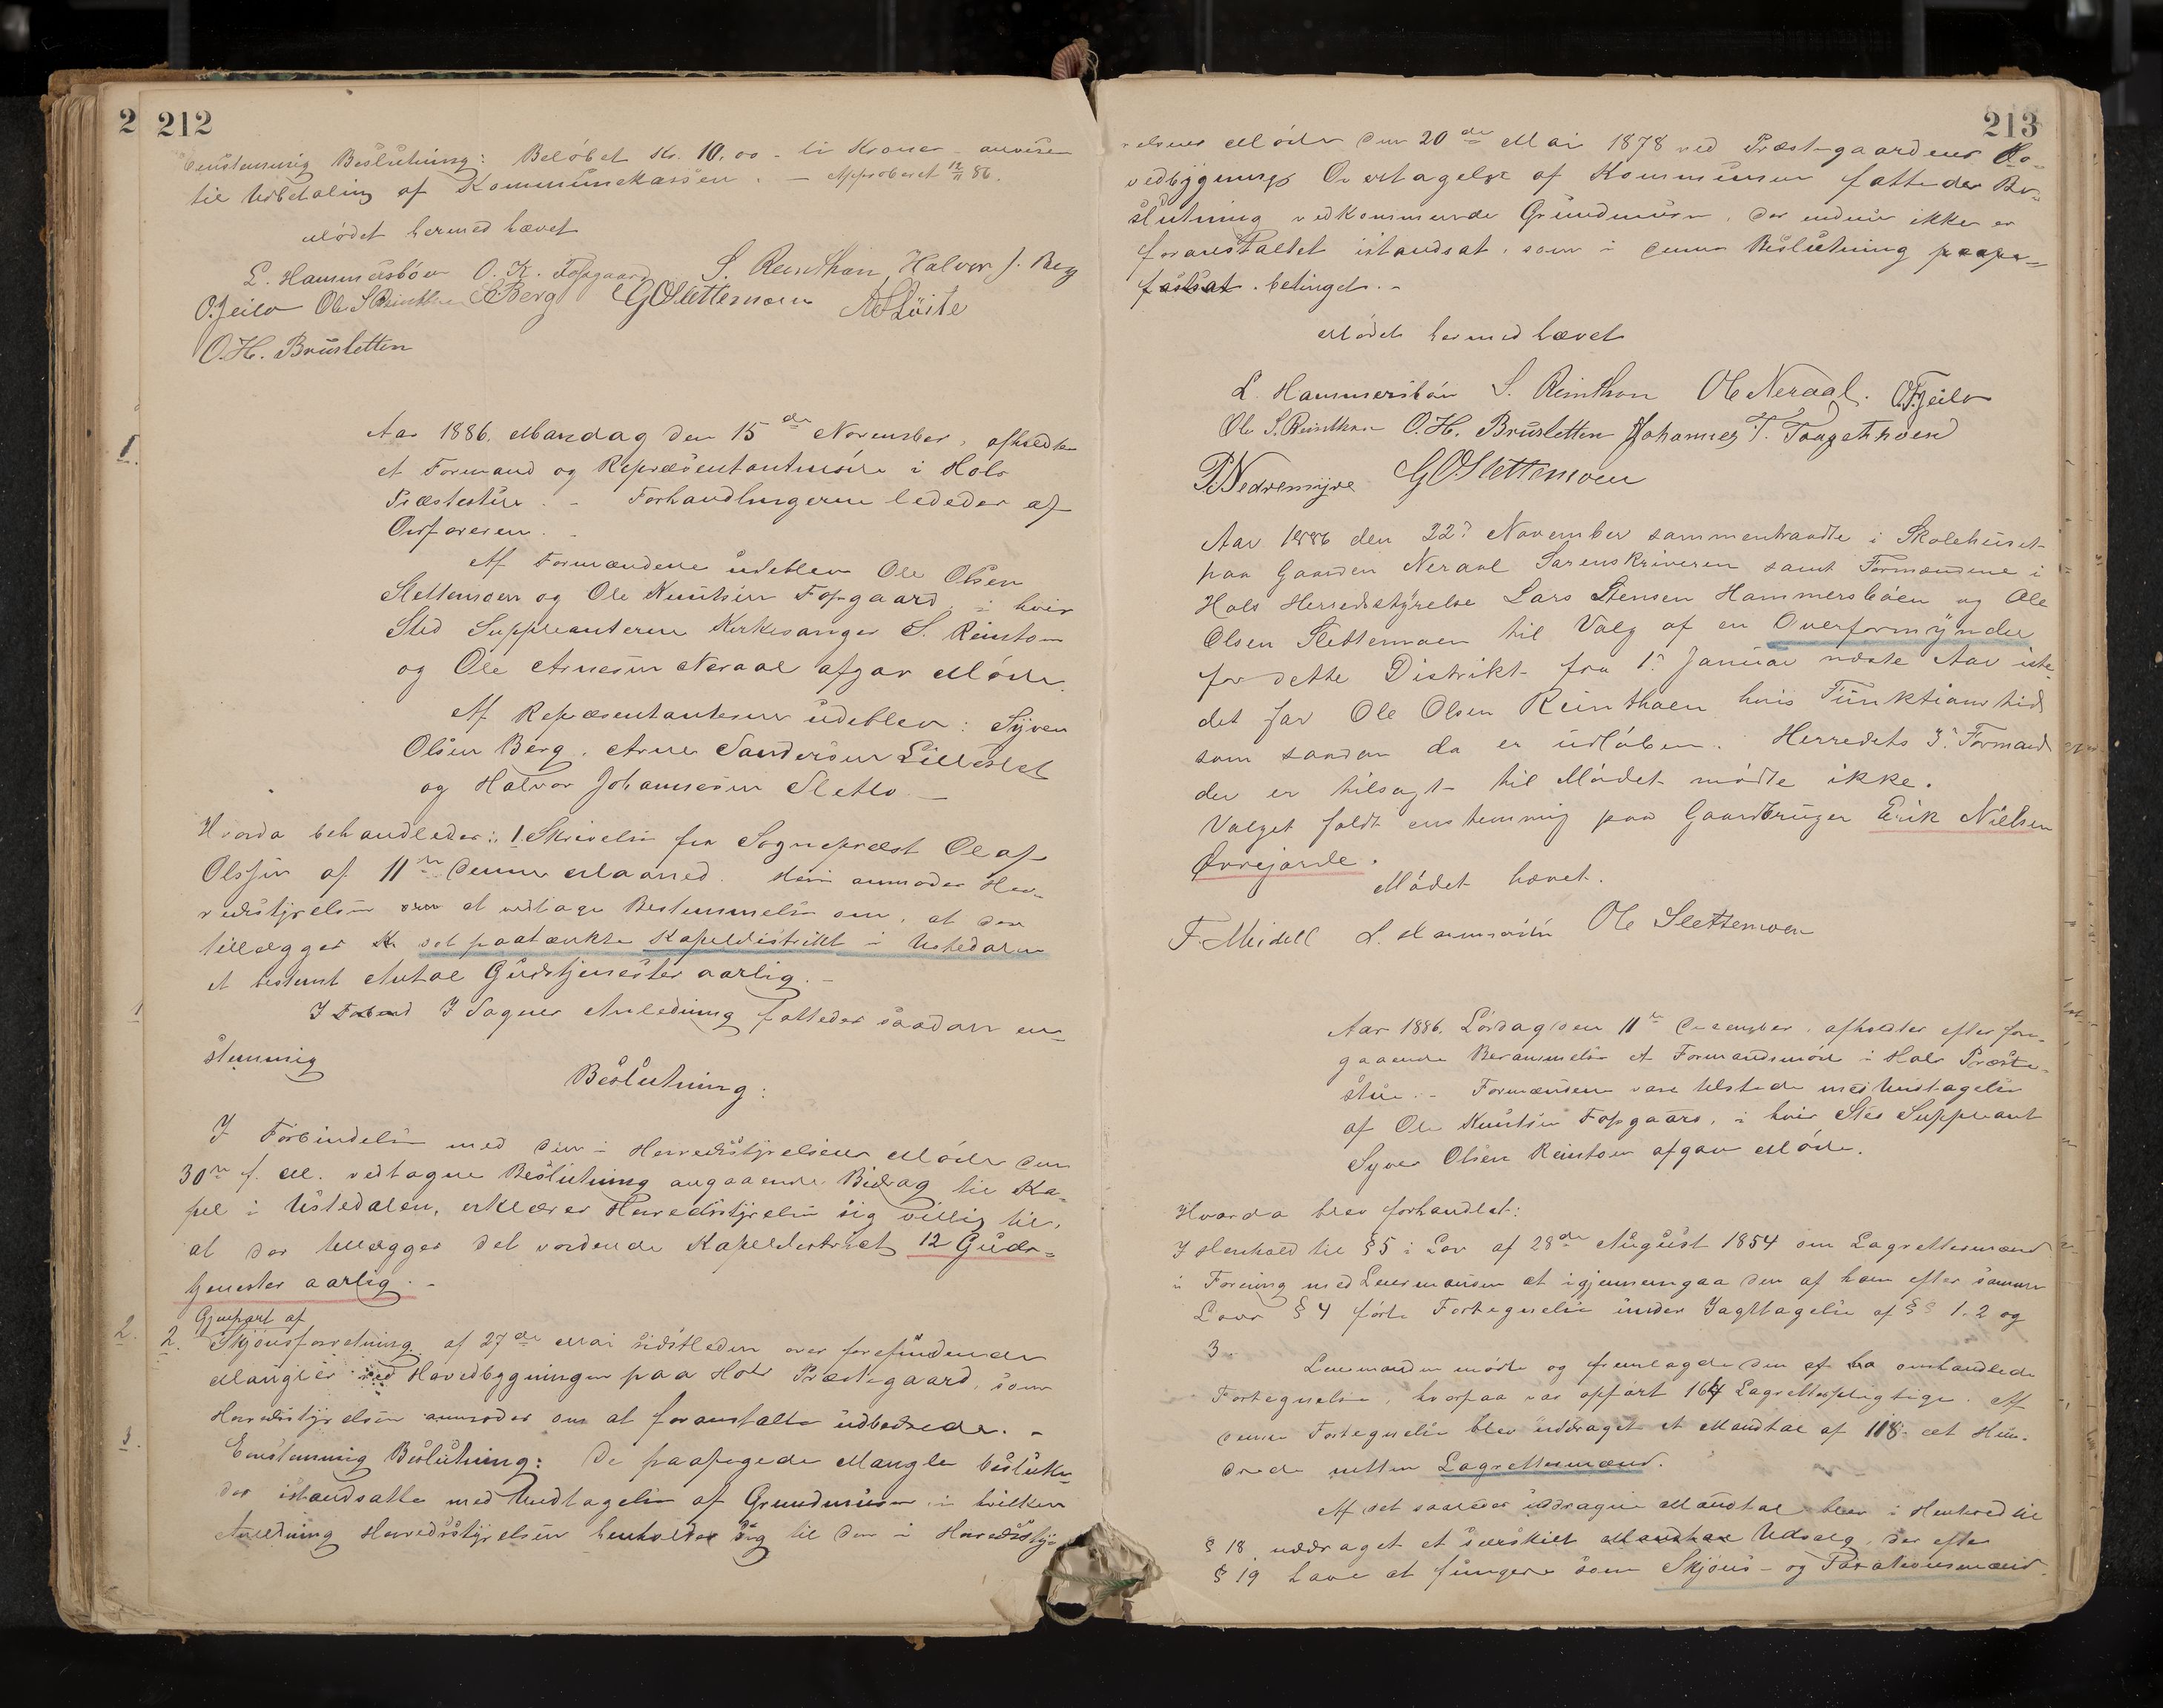 2 212
Eenstemmig Beslutning: Beløbet Kr. 10,00 - ti Kroner - anvises
til Udbetaling af Kommunekassen. - Approberet 12/11 86.
Mødet hermed hævet
L. Hammersbøen O. K. Fopgaard S. Reinthon Halvor J. Berg
O. Jeilo Ole S Reinthon S Berg G O Slettemoen
O. H. Brusletten
1.
Aar 1886, Mandag den 15de November, afholdtes
et Formand og Repræsentantmøde i Hols
Præstestue. - Forhandlingerne lededes af
Ordføreren. -
Af Formændene udeblev Ole Olsen
Slettemoen og Ole Knutsen Fopgaard, i hvis
Sted Suppleanterne Kirkesanger S. Reinton
og Ole Arnesen Neraal afgav Møde.
Af Repræsentanterne udeblev: Syver
Olsen Berg, Arne Sandersen Lilleslet
og Halvor Johannesen Sletto -
Hvorda behandledes: 1. Skrivelse fra Sognepræst Olaf
Olssen af 11te denne Maaned. Heri anmodes Her-
redsstyrelsen om at vedtage Bestemmelse om, at der
tillægges det paatænkte Kapeldistrikt i Ustedalen
et bestemt Antal Gudstjenester aarlig. -
1
I Sagnes Anledning fattedes saadan en-
stemmig
Beslutning:
I Forbindelse med den i Herredsstyrelsens Møde den
30te f. M. vedtagne Beslutning angaaende Bidrag til Ka-
pel i Ustedalen, erklærer Herredsstyrelsen sig villig til,
at der tillægges det vordende Kapeldistrict 12 Guds-
tjenester aarlig. -
Gjenpart af
2. 2. Skjønsforretning af 27de Mai sidstleden over forefindende
Mangler ved Hovedbygningen paa Hols Præstegaard, som
Herredsstyrelsen anmodes om at foranstalte udbedrede. -
3.
Eenstemmig Beslutning: De paapegede Mangler beslutte-
des istandsatte med Undtagelse af Grundmuren, i hvilken
Anledning Herredsstyrelsen henholder sig til den i Herredssty-
213
relsens Møde den 20de Mai 1878 ved Præstegaardens Ho-
vedbygnings Overtagelse af Kommunen fattede Be-
slutning vedkommende Grundmuren, der endnu ikke er
foranstaltet istandsat, som i denne Beslutning
fastsat betinget. -
Mødet hermed hævet
L. Hammersbøen S. Reinthon Ole Neraal. O. Jeilo
Ole S. Reinthon O. H. Brusletten Johannes T. Taugethoen
P Nedremyre G O Slettemoen
Aar 1886 den 22d November sammentraadte i Skolehuset
paa Gaarden Neraal Sorenskriveren samt Formændene i
Hols Herredsstyrelse Lars Stensen Hammersbøen og Ole
Olsen Slettemoen til Valg af en Overformynder
for dette Distrikt fra 1ste Januar næste Aar iste-
det for Ole Olsen Reinthoen hvis Funktionstid
som saadan da er udløben. Herredets 3d Formand
der er tilsagt til Mødet mødte ikke.
Valget faldt enstemmig paa Gaardbruger Erik Nielsen
Øvrejorde.
Mødet hævet.
F. Meidell L. Hammersbøen Ole Slettemoen
Aar 1886, Lørdag den 11te December, afholdtes efter fore-
gaaende Berammelse et Formandsmøde i Hols Præste-
stue. - Formændene vare tilstede med Undtagelse
af Ole Knutsen Fopgaard, i hvis Sted Suppleant
Syver Olsen Reinton afgav Møde.
Hvorda blev forhandlet:
I Henhold til § 5 i Lov af 28de August 1854 om Lagrettesmænd
i Forening med Lensmanden at igjennemgaa den af ham efter samme
Lovs § 4 førte Fortegnelse under Iagttagelse af §§ 1, 2 og
3.
Lensmanden mødte og fremlagde den af ha omhandlede
Fortegnelse, hvorpaa var opført 164 Lagrettespligtige. Af
denne Fortegnelse blev uddraget et Mandtal af 118 - et Hun-
drede atten Lagrettesmænd.
Af det saaledes uddragne Mandtal blev i Henhold til
§ 18 uddraget et særskilt Mandtal Udvalg, der efter
§ 19 have at fungere som Skjøns- og Taxationsmænd.